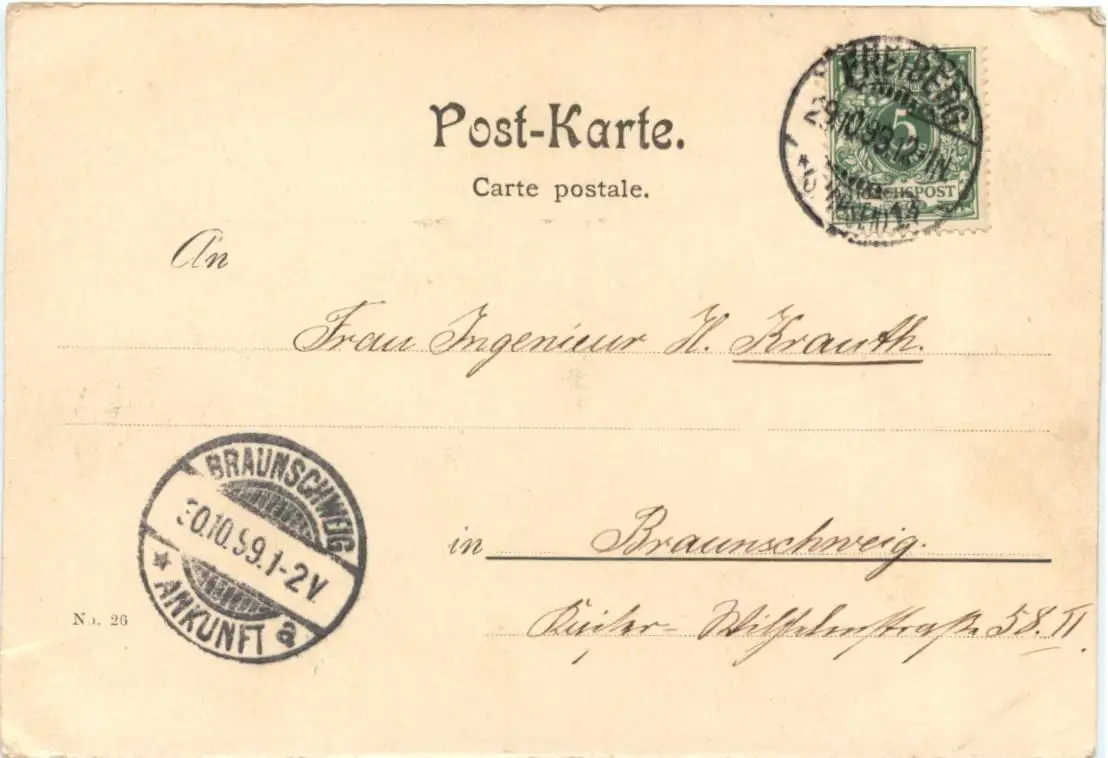 Post-Karte.
Carte postale.
FREIBERG
29.10.99.12-1N.
5
REICHSPOST
An
Frau Ingenieur H. Krauth.
BRAUNSCHWEIG
30.10.99.1-2V.
* ANKUNFT a
in Braunschweig.
Kaiser-Wilhelmstraße 58. II.
No. 26